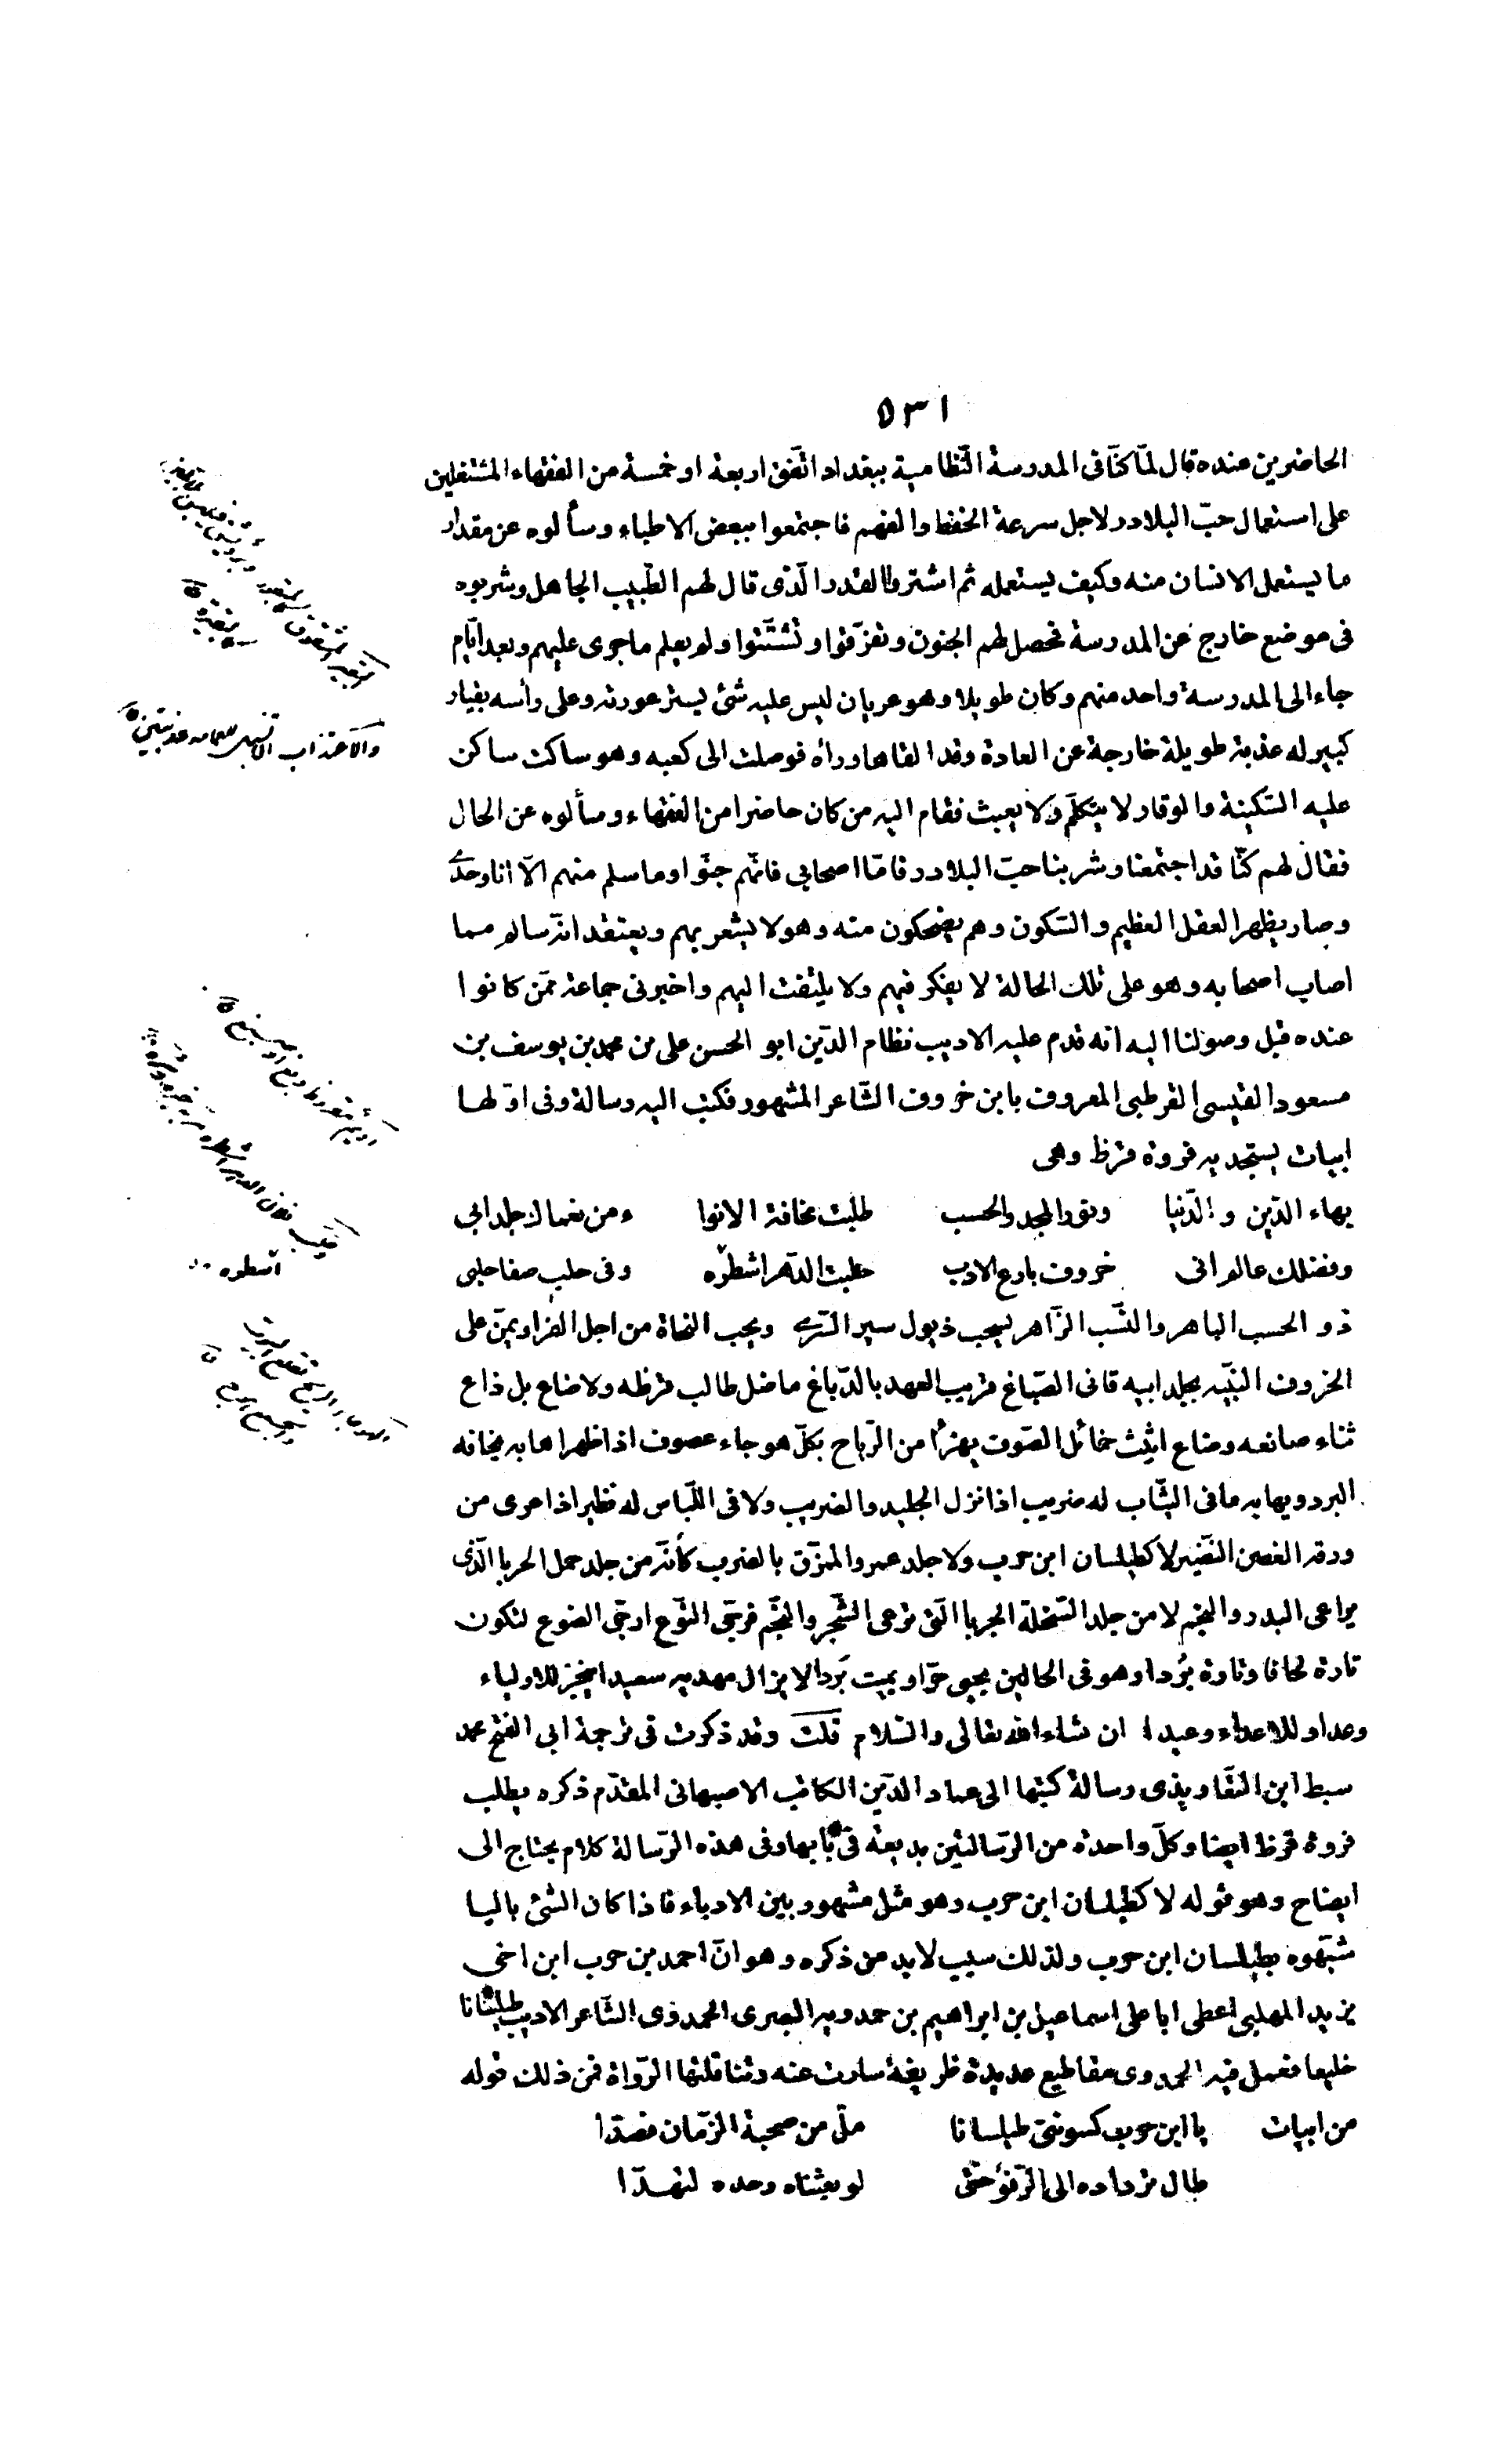 ٥٣١
الحاضرين عنده قال لمّا كنّا فى المدرسة النّظامية ببغداد اتّفق اربعة او خمسة من الفقهاء المشتغلين
على استعمال حبّ البلادر لاجل سرعة الحفظ والفهم فاجتمعوا ببعض الاطباء وسألوه عن مقدار
ما يستعمل الانسان منه وكيف يستعمله ثم اشتروا القدر الّذى قال لهم الطّبيب الجاهل وشربوه
فى موضع خارج عن المدرسة فحصل لهم الجنون وتفرّقوا وتشتّتوا ولم يعلم ما جرى عليهم وبعد ايّام
جاء الى المدرسة واحد منهم وكان طويلا وهو عريان ليس عليه شئ يستر عورته وعلى رأسه بقيار
كبير له عذبة طويلة خارجة عن العادة وقد القاها وراه فوصلت الى كعبه وهو ساكت ساكن
عليه السّكينة والوقار لا يتكلّم ولا يعبث فقام اليه من كان حاضرا من الفقهاء وسألوه عن الحال
فقال لهم كنّا قد اجتمعنا وشربنا حبّ البلادر فامّا اصحابى فانّهم جنّوا وما سلم منهم الّا انا وحدى
وصار يظهر العقل العظيم والسّكون وهم يضحكون منه وهو لا يشعر بهم ويعتقد انّه سالم مما
اصاب اصحابه وهو على تلك الحالة لا يفكر فيهم ولا يلتفت اليهم واخبرنى جماعة ممّن كانوا
عنده قبل وصولنا اليه انه قدم عليه الاديب نظام الدّين ابو الحسن على بن محمد بن يوسف بن
مسعود القيسى القرطبى المعروف بابن خروف الشّاعر المشهور فكتب اليه رسالة وفى اوّلها
ابيات يستجديه فروة قرظ وهى
بهاء الدّين والدّنيا ونور المجد والحسب طلبت مخافة الانوا ء من نعماك جلد ابى
وفضلك عالم انى خروف بارع الادب حلبت الدّهر اشطرّه وفى حلب صفا حلبى
ذو الحسب الباهر والنّسب الزّاهر يسحب ذيول سير السّرى ويحب النحاة من اجل الفرا ويمنّ على
الخروف النّبيه بجلد ابيه قانى الصّباغ قريب العهد بالدّباغ ما ضل طالب قرظه ولا ضاع بل ذاع
ثناء صانعه وضاع اثيث خمائل الصّوف يهزأ من الرّياح بكلّ هوجاء عصوف اذا ظهر اهابه يخافه
البرد ويهابه ما فى الثّياب له ضريب اذا نزل الجليد والضريب ولا فى اللّباس له نظير اذا عرى من
ورقه الغصن النّضير لا كطيلسان ابن حرب ولا جلد عمرو الممزّق بالضرب كأنّه من جلد حمل الحربا الّذى
يراعى البدر والنجم لا من جلد السّخلة الجربا الّتى ترعى الشّجر والنّجم فرجّى النّوع ارجّى الضوع لتكون
تارة لحافا وتارة بُردا وهو فى الحالين يحيى حرّا ويميت بَردا لا يزال مهديه سعيدا ينجز للاولياء
وعدا وللاعداء وعيدا ان شاء الله تعالى والسّلام قلت وقد ذكرت فى ترجمة ابى الفتح محمد
سبط ابن التعّاويذى رسالة كتبها الى عماد الدّين الكاتب الاصبهانى المقدّم ذكره يطلب
فروة قرظ ايضا وكلّ واحدة من الرّسالتين بديعة فى بابها وفى هذه الرّسالة كلام يحتاج الى
ايضاح وهو قوله لا كطيلسان ابن حرب وهو مثل مشهور بين الادباء فاذا كان الشئ باليا
شبّهوه بطيلسان ابن حرب ولذلك سبب لا بد من ذكره وهو انّ احمد بن حرب ابن اخى
يزيد المهلبى اعطى ابا على اسماعيل بن ابراهيم بن حمدويه البصرى الحمدوى الشّاعر الاديب طيلسانا
خليعا فعمل فيه الحمدوى مقاطيع عديدة ظريفة سارت عنه وتناقلتها الرّواة فمن ذلك قوله
من ابيات يا ابن حرب كسوتنى طيلسانا ملّ من صحبة الزّمان فصدّا
طال ترداده الى الرّفو حتّى لو بعثناه وحده لتهدّا